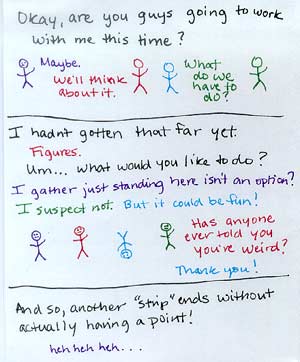 Okay, are you guys going to work
with me this time?
Maybe.
We'll think
about it.
What
do we
have to
do?
I hadn't gotten that far yet.
Figures.
Um... what would you like to do?
I gather just standing here isn't an option?
I suspect not. But it could be fun!
Has anyone
ever told you
you're weird?
Thank you!
And so, another "strip" ends without
actually having a point!
heh heh heh...